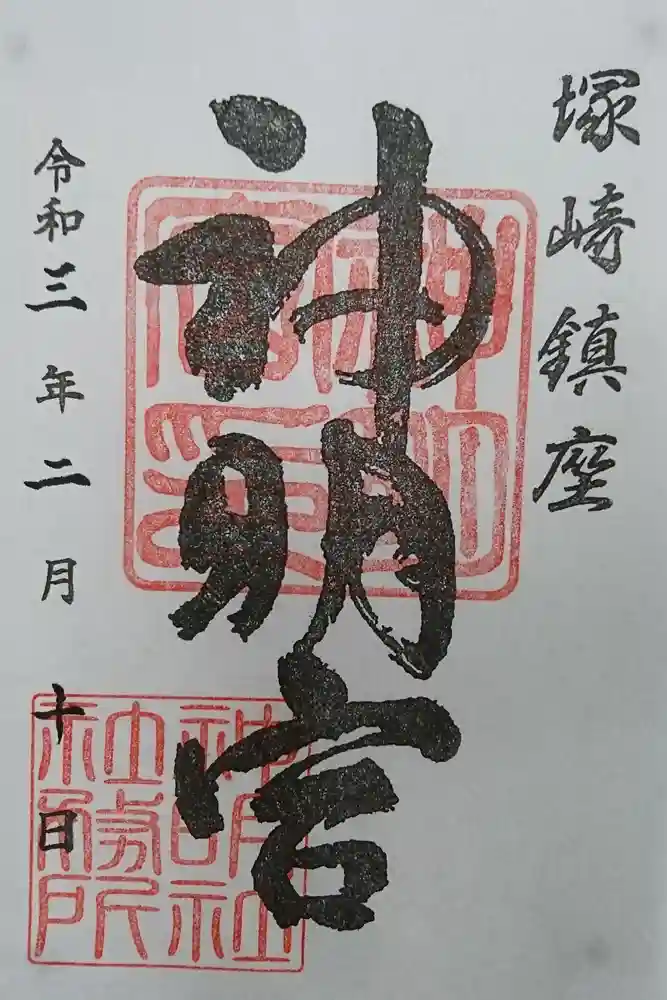 塚崎鎮座
神明宮
神明宮印
令和三年二月十日
神明社社務所